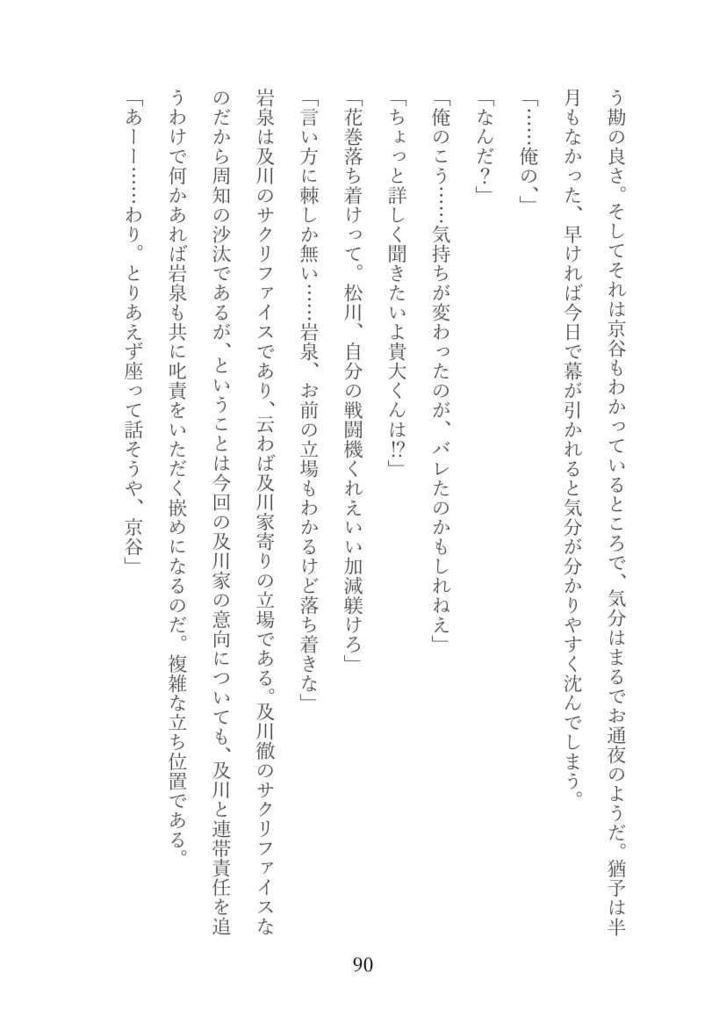 う勘の良さ。そしてそれは京谷もわかっているところで、気分はまるでお通夜のようだ。猶予は半
月もなかった、早ければ今日で幕が引かれると気分が分かりやすく沈んでしまう。
「……俺の、」
「なんだ？」
「俺のこう……気持ちが変わったのが、バレたのかもしれねえ」
「ちょっと詳しく聞きたいよ貴大くんは!?」
「花巻落ち着けって。松川、自分の戦闘機くれえいい加減躾けろ」
「言い方に棘しか無い……岩泉、お前の立場もわかるけど落ち着きな」
岩泉は及川のサクリファイスであり、云わば及川家寄りの立場である。及川徹のサクリファイスな
のだから周知の沙汰であるが、ということは今回の及川家の意向についても、及川と連帯責任を追
うわけで何かあれば岩泉も共に叱責をいただく嵌めになるのだ。複雑な立ち位置である。
「あーー……わり。とりあえず座って話そうや、京谷」
90